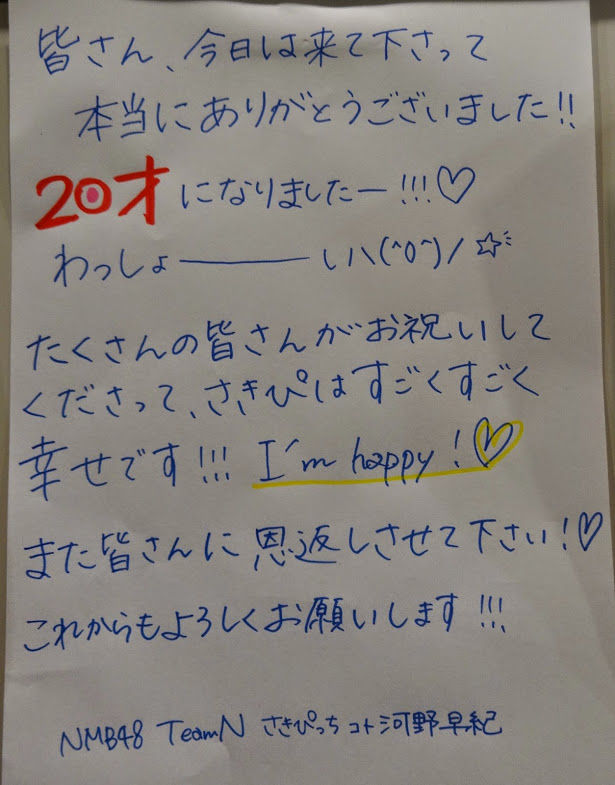 皆さん、今日は来て下さって
本当にありがとうございました!!
20才になりましたー!!!♡
わっしょ――――い\(^o^)/☆
たくさんの皆さんがお祝いして
くださって、さきぴはすごくすごく
幸せです!!! I'm happy!♡
また皆さんに恩返しさせて下さい!♡
これからもよろしくお願いします!!!
NMB48 TeamN さきぴっち コト 河野早紀